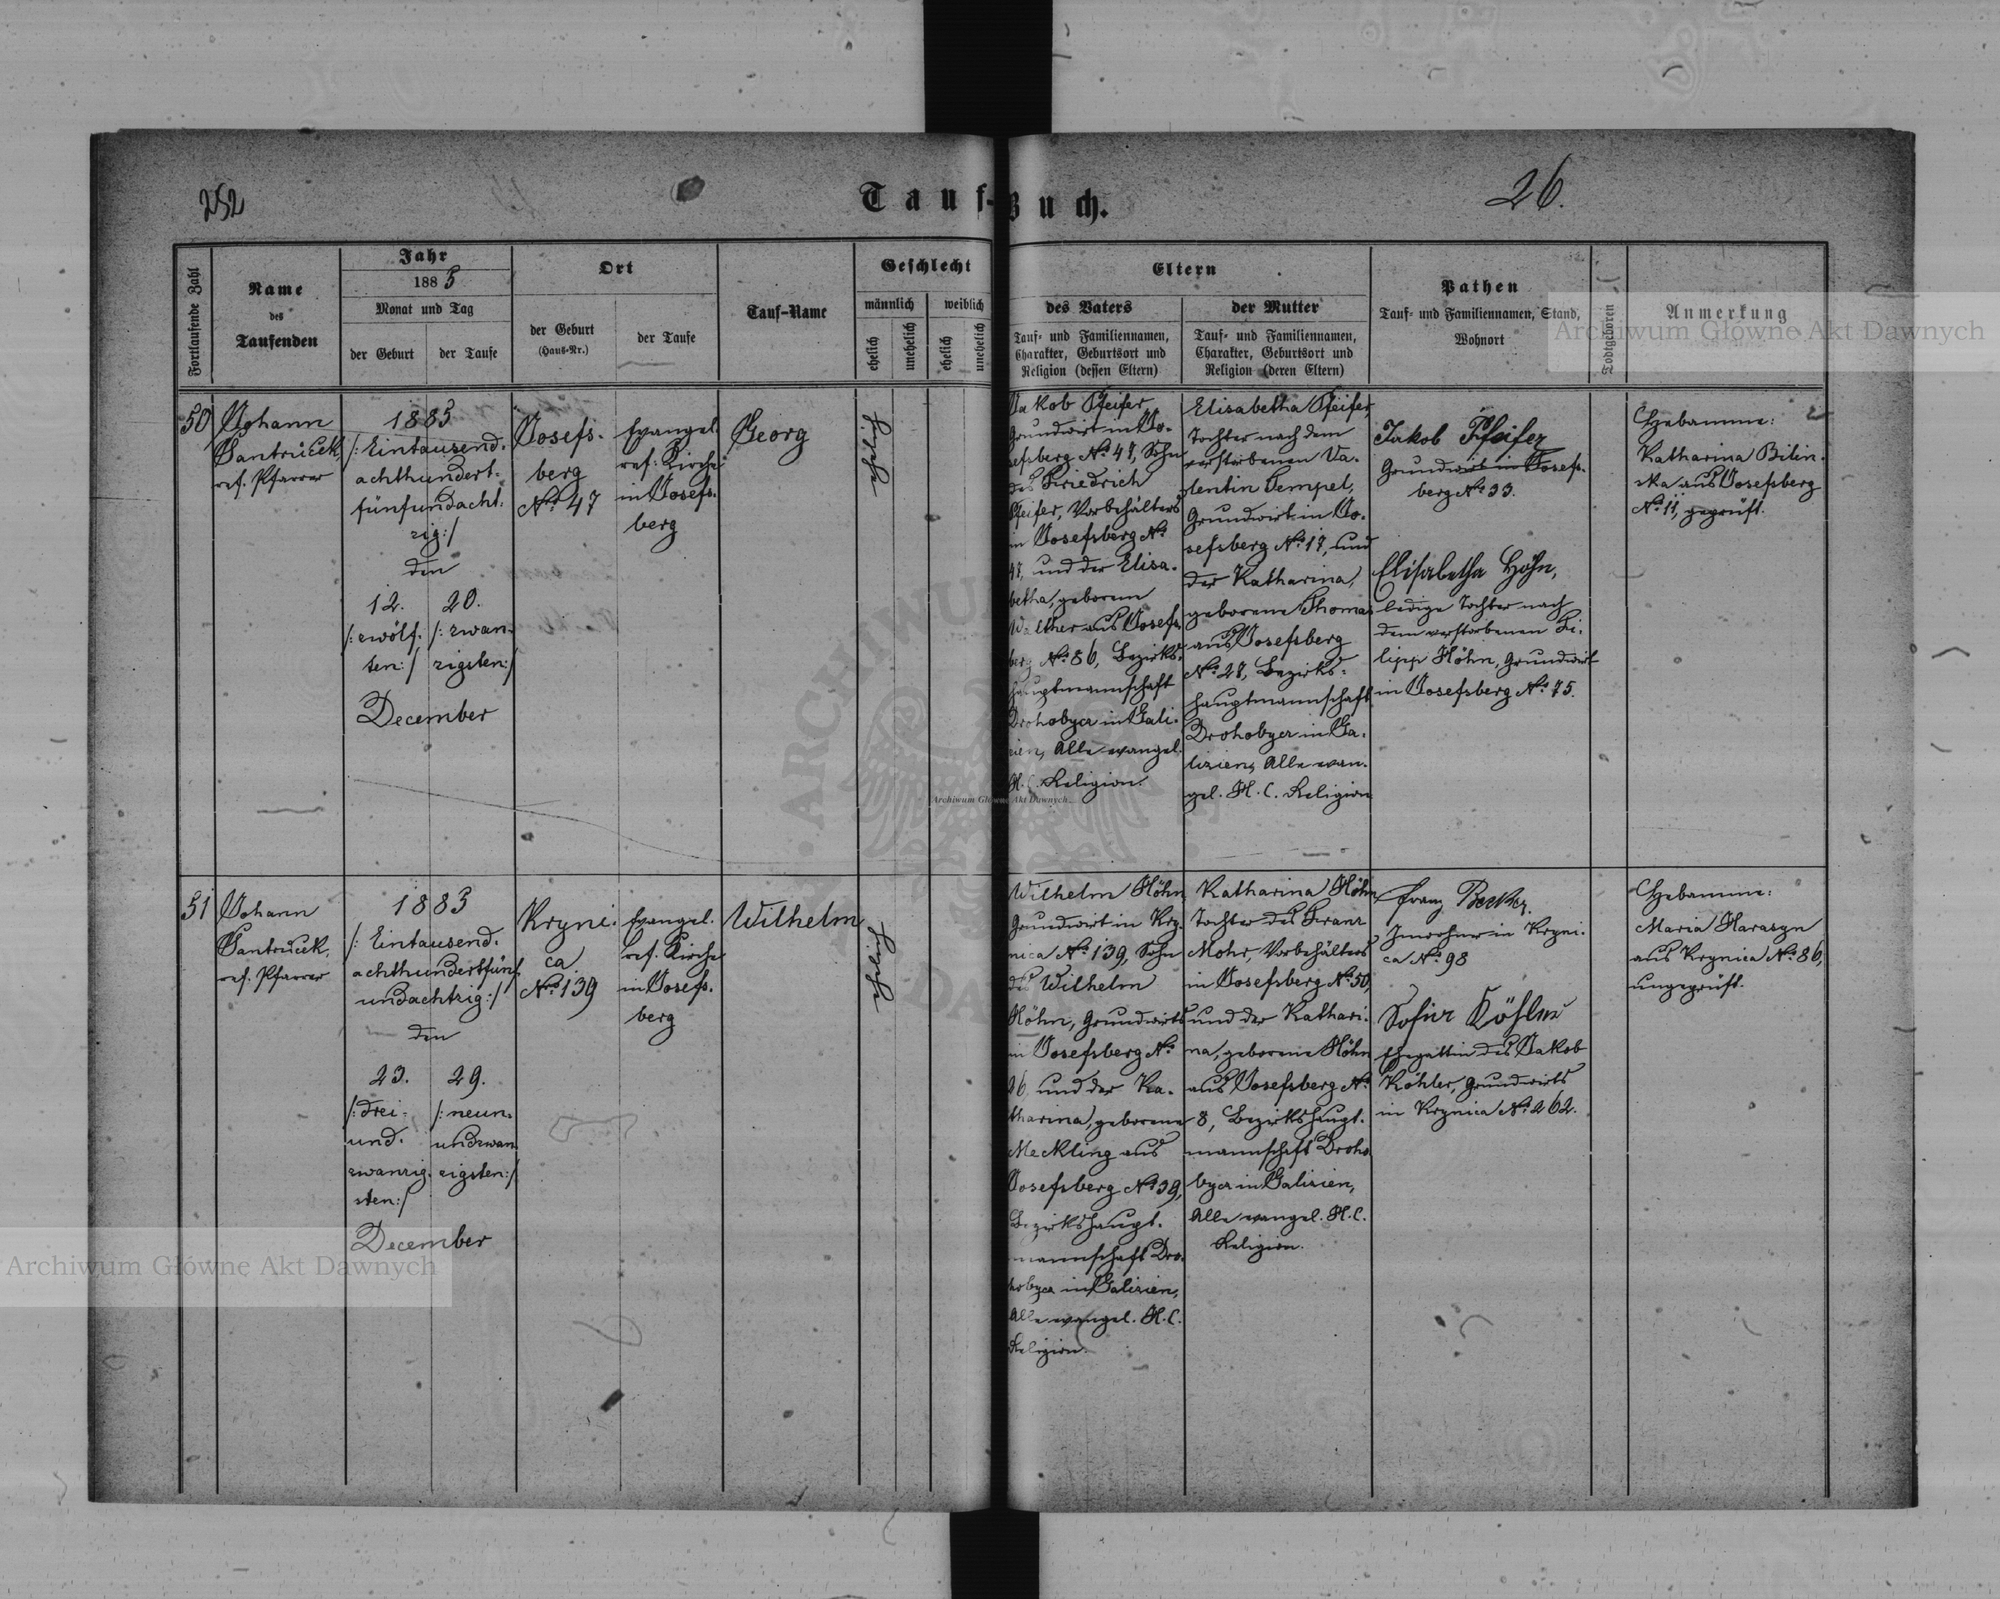 252
Tauf-Buch.
26.
Fortlaufende Zahl
Name
des
Taufenden
Jahr
1885
Monat und Tag
der Geburt
der Taufe
Ort
der Geburt
(Haus-Nr.)
der Taufe
Tauf-Name
Geschlecht
männlich
weiblich
ehelich
unehelich
ehelich
unehelich
Eltern
des Vaters
Tauf- und Familiennamen,
Charakter, Geburtsort und
Religion (dessen Eltern)
der Mutter
Tauf- und Familiennamen,
Charakter, Geburtsort und
Religion (deren Eltern)
Pathen
Tauf- und Familiennamen, Stand,
Wohnort
Todtgeboren
Anmerkung
50
Johann
Santrůček,
ref. Pfarrer
1885
/: Eintausend-
achthundert-
fünfundacht-
zig:/
den
12.
/: zwölf-
ten:/
20.
/: zwan-
zigsten:/
December
Josefs-
berg
No 47
Evangel.
ref: Kirche
in Josefs-
berg
Georg
ehelich
Jakob Pfeifer
Grundwirt in Jo-
sefsberg No 47, Sohn
des Friedrich
Pfeifer, Vorbehälters
in Josefsberg No
47, und der Elisa-
betha, geborene
Walther aus Josefs-
berg No 86, Bezirks-
hauptmannschaft
Drohobycz in Gali-
zien, Alle evangel.
H. C. Religion.
Elisabetha Pfeifer
Tochter nach dem
verstorbenen Va-
lentin Tempel,
Grundwirt in Jo-
sefsberg No 17, und
der Katharina,
geborene Thomas
aus Josefsberg
No 27, Bezirks-
hauptmannschaft
Drohobycz in Ga-
lizien, Alle evan-
gel. H. C. Religion
Jakob Pfeifer
Grundwirt in Josefs-
berg No 33.
Elisabetha Höhn,
ledige Tochter nach
dem verstorbenen Fi-
lipp Höhn, Grundwirt
in Josefsberg No 75.
Hebamme:
Katharina Bilin-
ska aus Josefsberg
No 11, geprüft.
51
Johann
Santrůček,
ref. Pfarrer
1885
/: Eintausend-
achthundertfünf-
undachtzig:/
den
23.
/: drei-
und-
zwanzig-
sten:/
29.
/: neun-
undzwan-
zigsten:/
December
Kryni-
ca
No 139
Evangel.
ref. Kirche
in Josefs-
berg
Wilhelm
ehelich
Wilhelm Höhn
Grundwirt in Kry-
nica No 139, Sohn
des Wilhelm
Höhn, Grundwirts
in Josefsberg No
26, und der Ka-
tharina, geborene
Meckling aus
Josefsberg No 39,
Bezirkshaupt-
mannschaft Dro-
hobycz in Galizien,
Alle evangel. H. C.
Religion.
Katharina Höhn
Tochter des Franz
Mohr, Vorbehälters
in Josefsberg No 50,
und der Kathari-
na, geborene Höhn
aus Josefsberg No
8, Bezirkshaupt-
mannschaft Droho-
bycz in Galizien,
Alle evangel. H. C.
Religion.
Franz Becker,
Inwohner in Kryni-
ca No 98
Sofie Köhler
Ehegattin des Jakob
Köhler, Grundwirts
in Krynica No 262.
Hebamme:
Maria Harasyn
aus Krynica No 86,
ungeprüft.
Archiwum Główne Akt Dawnych
Archiwum Główne Akt Dawnych
Archiwum Główne Akt Dawnych